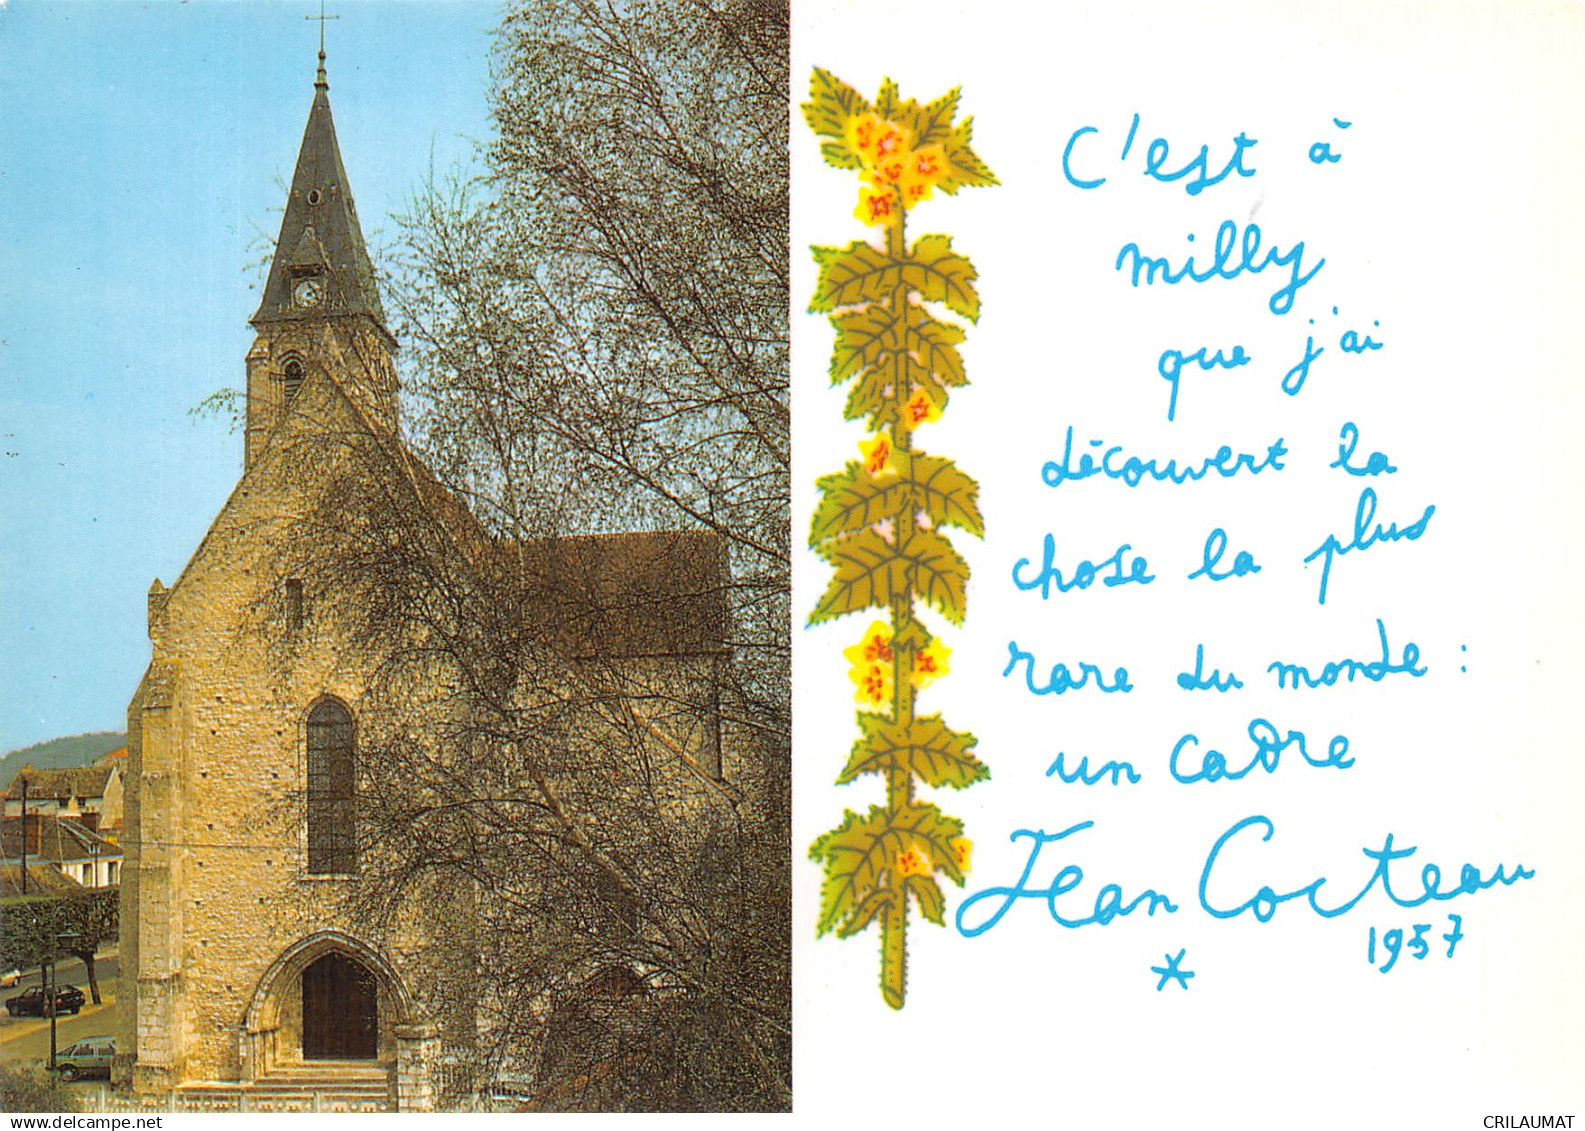 C'est à
milly
que j'ai
découvert la
chose la plus
rare du monde :
un cadre
Jean Cocteau
* 1957
CRILAUMAT